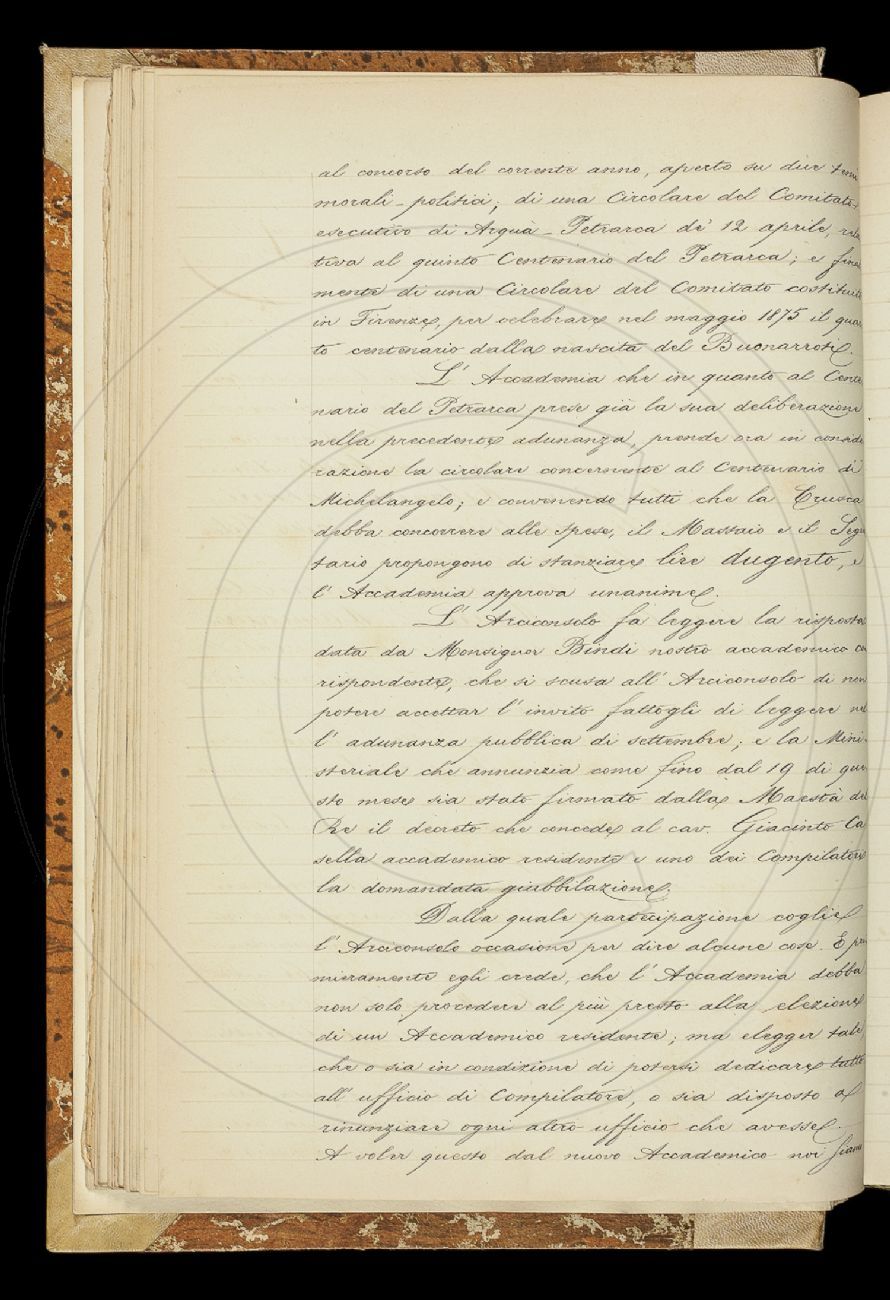 al concorso del corrente anno, aperto su due temi
morali-politici; di una Circolare del Comitato
esecutivo di Arquà-Petrarca de' 12 aprile, rela
tiva al quinto Centenario del Petrarca; e final
mente di una Circolare del Comitato costituito
in Firenze, per celebrare nel maggio 1875 il quar
to centenario dalla nascita del Buonarroti.
L'Accademia che in quanto al Cente
nario del Petrarca prese già la sua deliberazione
nella precedente adunanza, prende ora in conside
razione la circolare concernente al Centenario di
Michelangelo; e convenendo tutti che la Crusca
debba concorrere alle spese, il Massaio e il Segre
tario propongono di stanziare lire dugento, e
l'Accademia approva unanime.
L'Arciconsolo fa leggere la risposta
data da Monsignor Bindi nostro accademico co
rispondente, che si scusa all'Arciconsolo di non
potere accettar l'invito fattogli di leggere nel
l'adunanza pubblica di settembre; e la Mini-
steriale che annunzia come fino dal 19 di que
sto mese sia stato firmato dalla Maestà del
Re il decreto che concede al cav. Giacinto Ca
sella accademico residente e uno dei Compilatori
la domandata giubbilazione.
Dalla quale partecipazione coglie
l'Arciconsolo occasione per dire alcune cose. E pri
mieramente egli crede, che l'Accademia debba
non solo procedere al più presto alla elezione
di un Accademico residente; ma elegger tale,
che o sia in condizione di potersi dedicare tutto
all'ufficio di Compilatore, o sia disposto a
rinunziare ogni altro ufficio che avesse.
A voler questo dal nuovo Accademico noi siamo